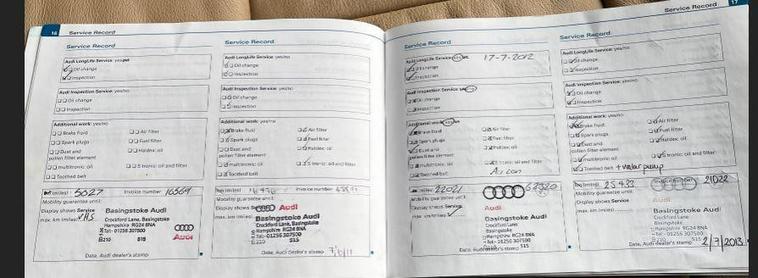 16
Service Record
Service Record
Audi LongLife Service yes/no
Oil change
Inspection
Audi Inspection Service yes/no
Oil change
Inspection
Additional work: yes/no
Brake fluid
Air filter
Spark plugs
Fuel filter
Dust and
Haldex oil
pollen filter element
multitronic oil
S tronic oil and filter
Toothed belt
5027
Invoice number
Mobility guarantee until
Display shows Service
max. km (miles)
Basingstoke Audi
Crockford Lane, Basingstoke
Hampshire RG24 8NA
Tel: 01256 307500
515
Audi
Date, Audi dealer's stamp
Service Record
Audi LongLife Service yes/no
Oil change
Inspection
Audi Inspection Service yes/no
Oil change
Inspection
Additional work: yes/no
Brake fluid
Air filter
Spark plugs
Fuel filter
Dust and
Haldex oil
pollen filter element
multitronic oil
S tronic oil and filter
Toothed belt
Invoice number
Mobility guarantee until
Display shows
Audi
max. km (miles)
Basingstoke Audi
Crockford Lane, Basingstoke
Hampshire RG24 8NA
Tel: 01256 307500
515
Date, Audi dealer's stamp
Service Record
Audi LongLife Service
17-7-2012
Oil change
Inspection
Audi Inspection Service
Oil change
Inspection
Additional work:
Brake fluid
Air filter
Spark plugs
Fuel filter
Dust and
Haldex oil
pollen filter element
multitronic oil
S tronic oil and filter
Toothed belt
22021
Mobility guarantee until
Display shows Service
Audi
Basingstoke Audi
Crockford Lane
Basingstoke
Hampshire RG24 8NA
Tel: 01256 307500
515
Date, Audi dealer's stamp
Service Record
17
Audi LongLife Service yes/no
Oil change
Inspection
Audi Inspection Service yes/no
Oil change
Inspection
Additional work: yes/no
Brake fluid
Air filter
Spark plugs
Fuel filter
Dust and
Haldex oil
pollen filter element
multitronic oil
S tronic oil and filter
Toothed belt
25433
Mobility guarantee until
Display shows Service
max. km (miles)
Basingstoke Audi
Crockford Lane
Basingstoke
Hampshire RG24 8NA
Tel: 01256 307500
515
Date, Audi dealer's stamp
2/7/2013